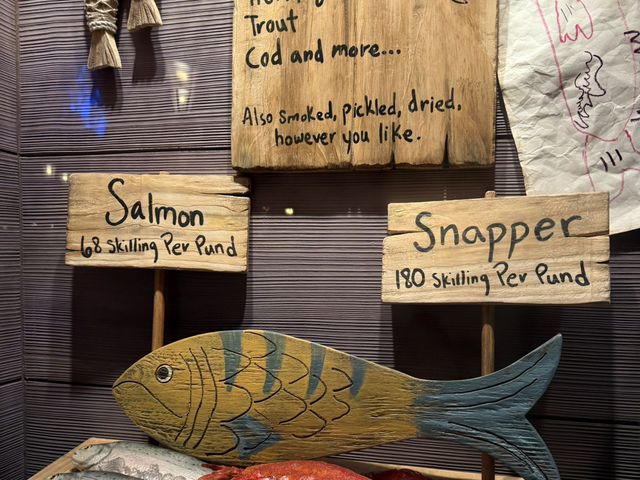 Trout
Cod and more...
Also smoked, pickled, dried,
however you like.
Salmon
68 Skilling Per Pund
Snapper
180 Skilling Per Pund